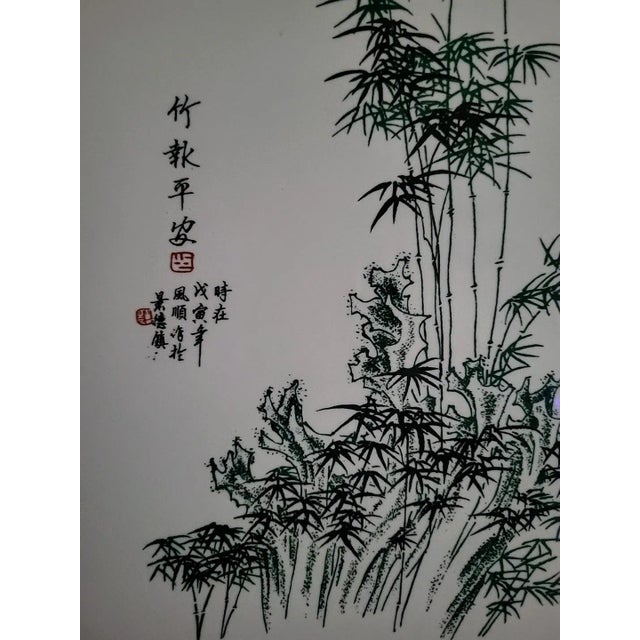 竹報平安
時在
戊寅年
風順清於
景德鎮